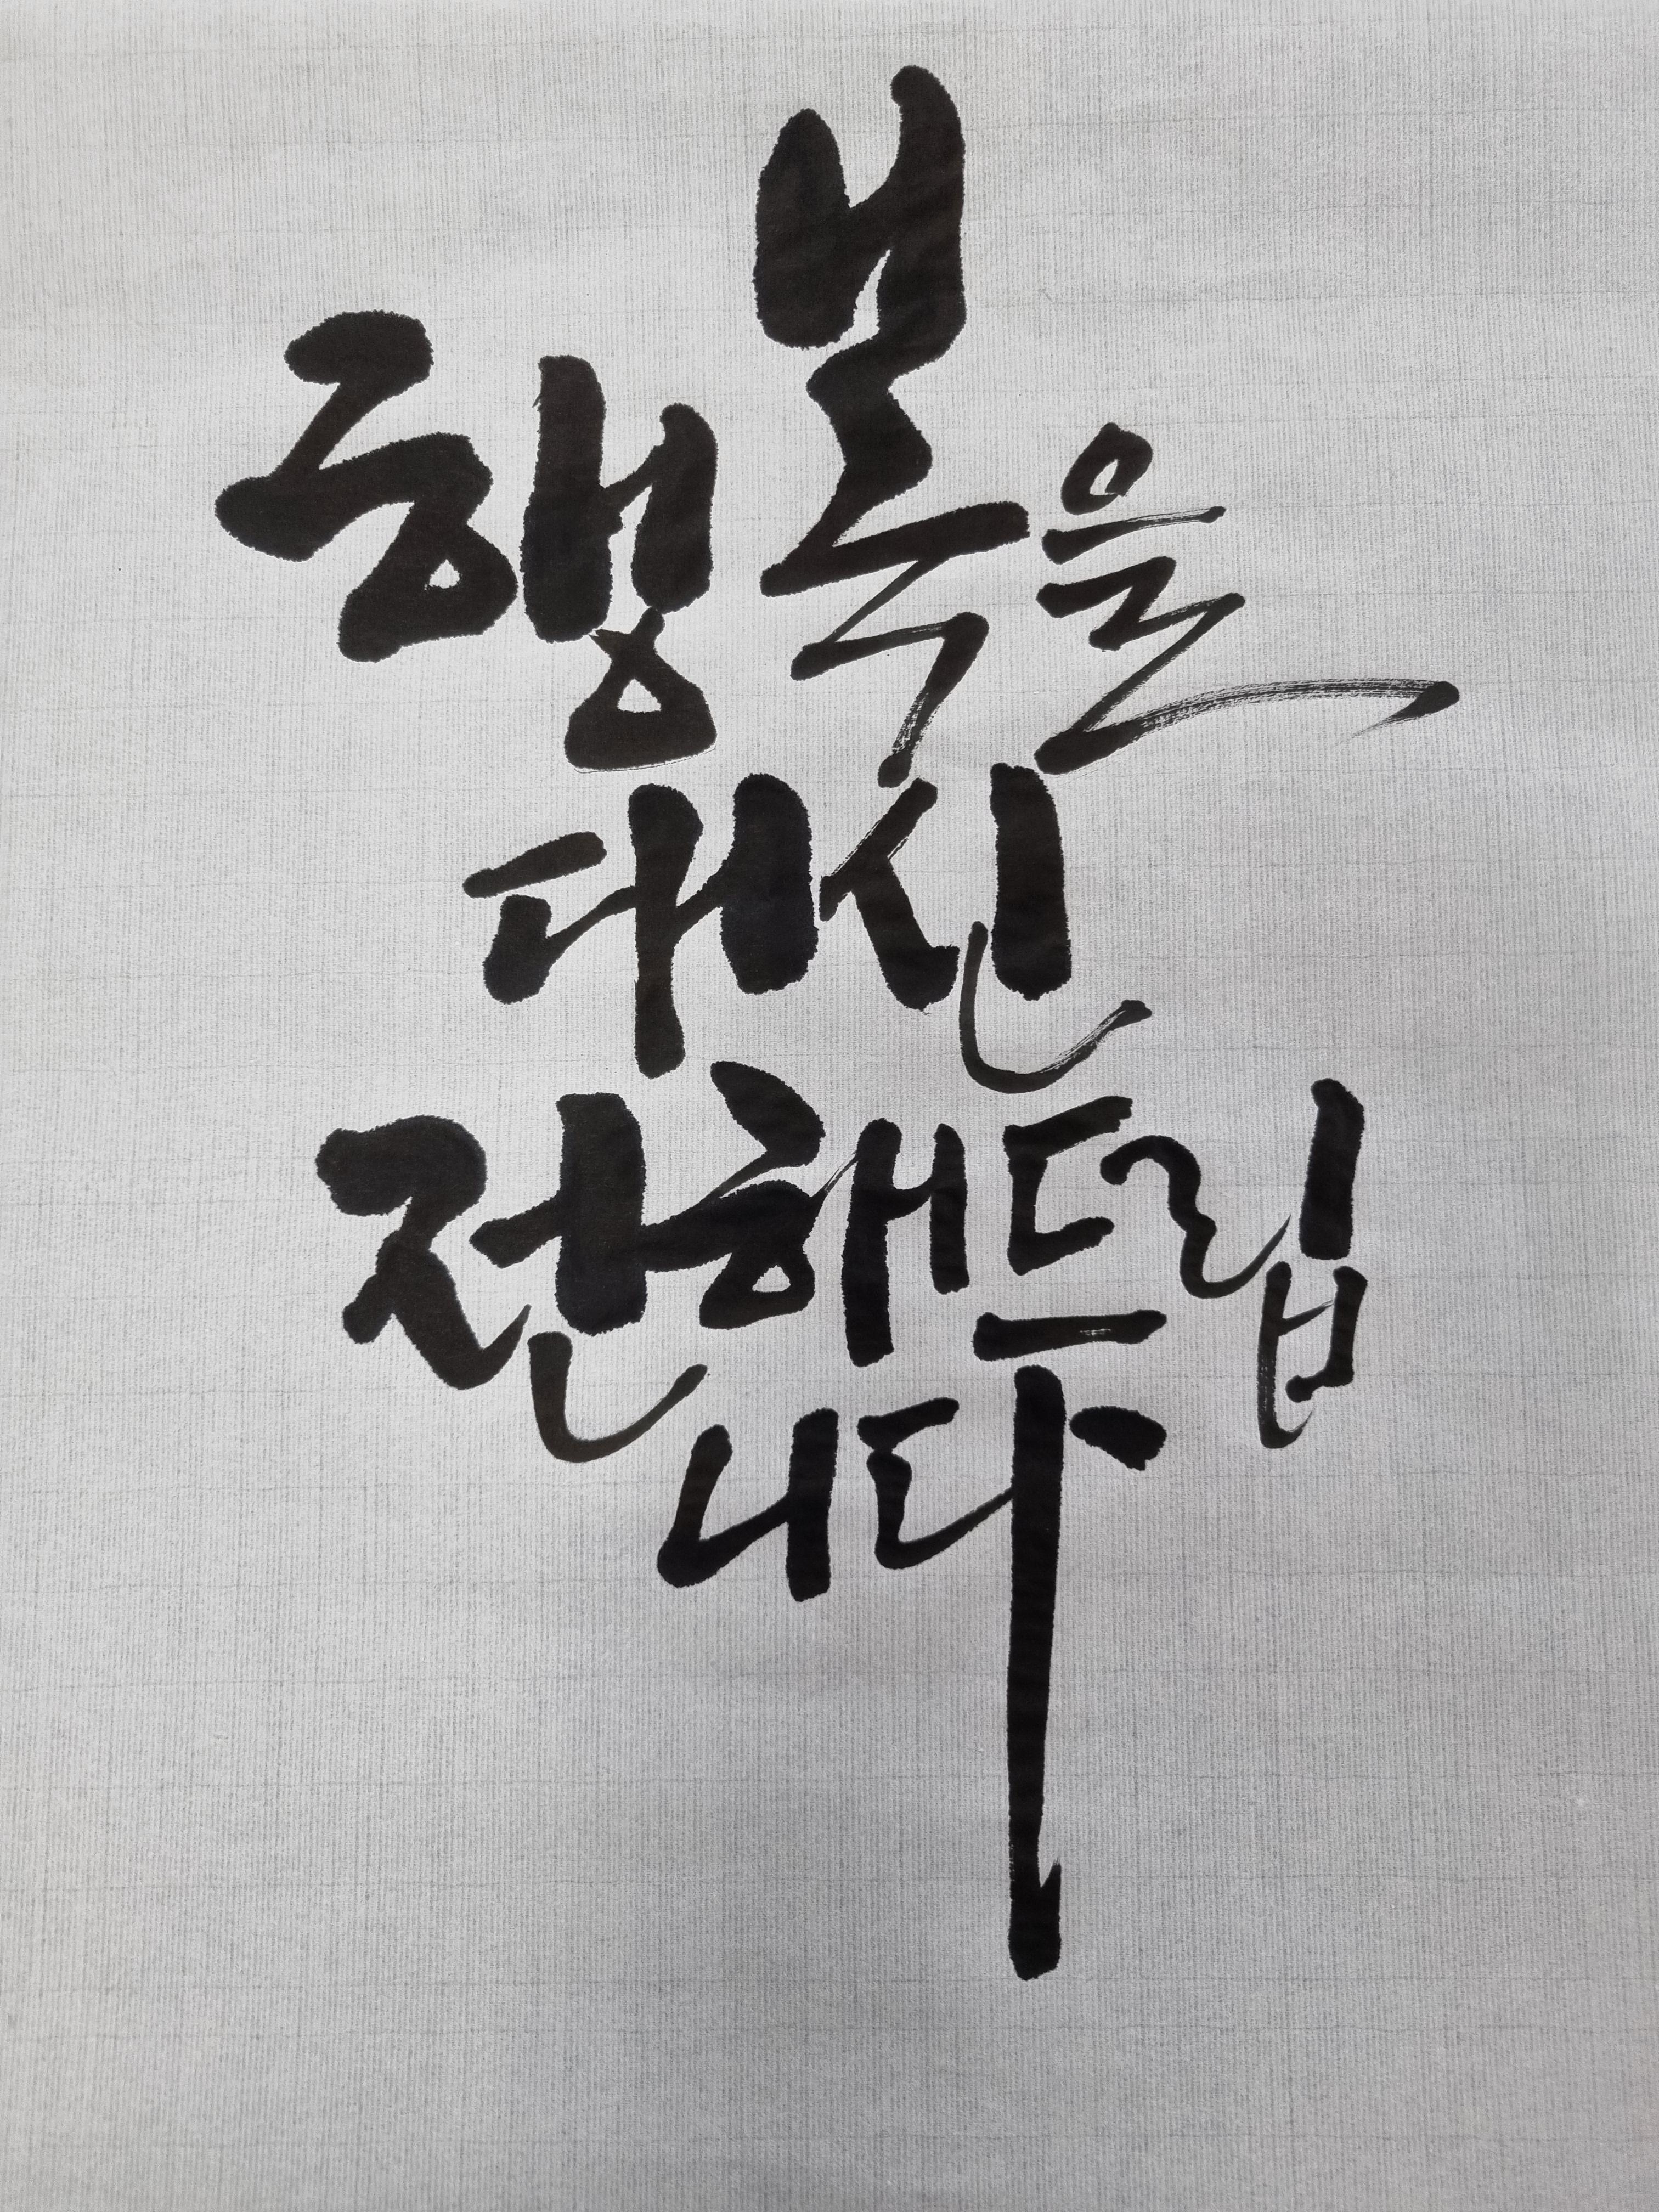 행복을
대신
전해드립
니다